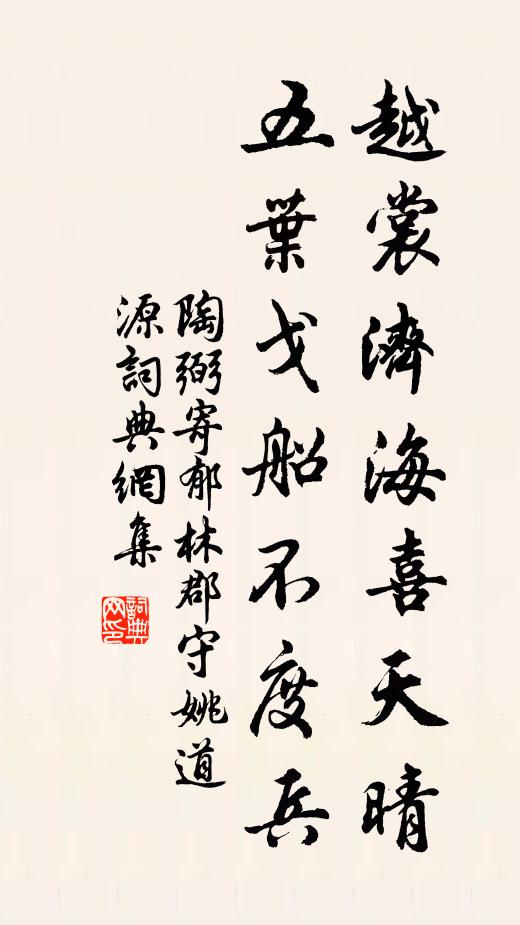 越裳濟海喜天晴
五葉戈船不度兵
陶弼寄郁林郡守姚道
源詞典網集
詞典网印